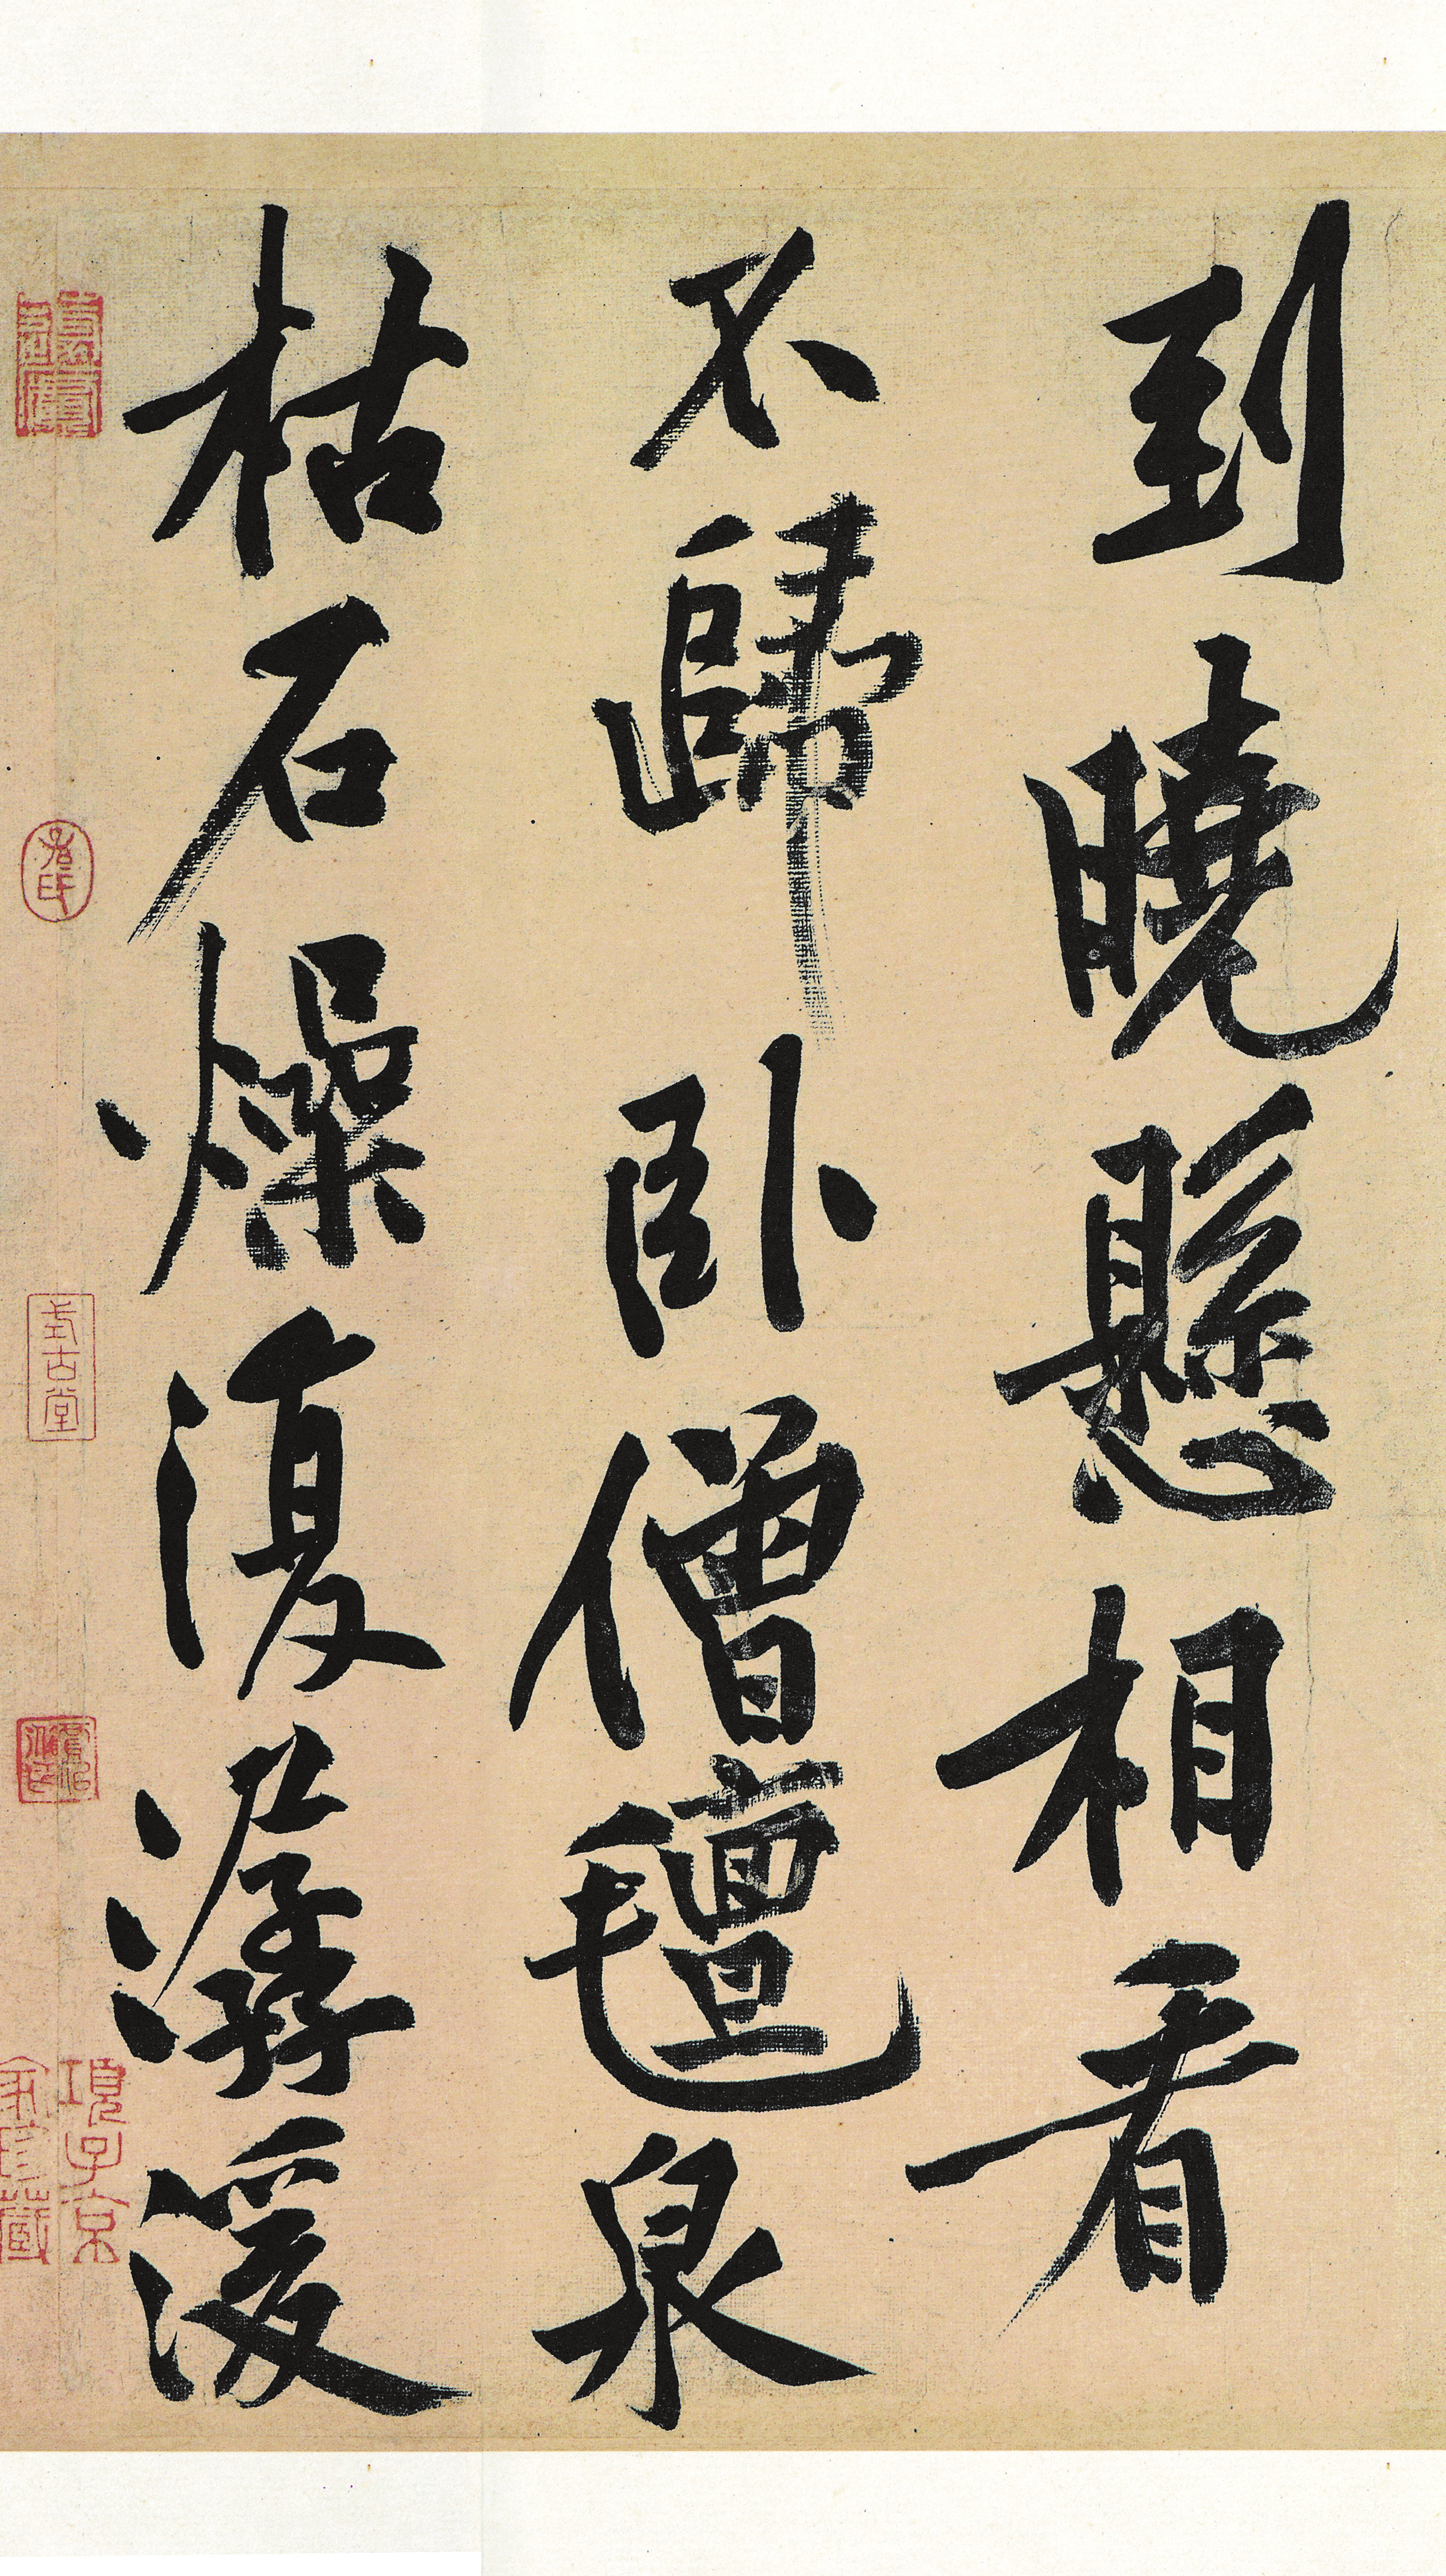 到曉懸相看
不歸卧僧氊泉
枯石燥復潺湲
式古堂
項子京
家珍藏